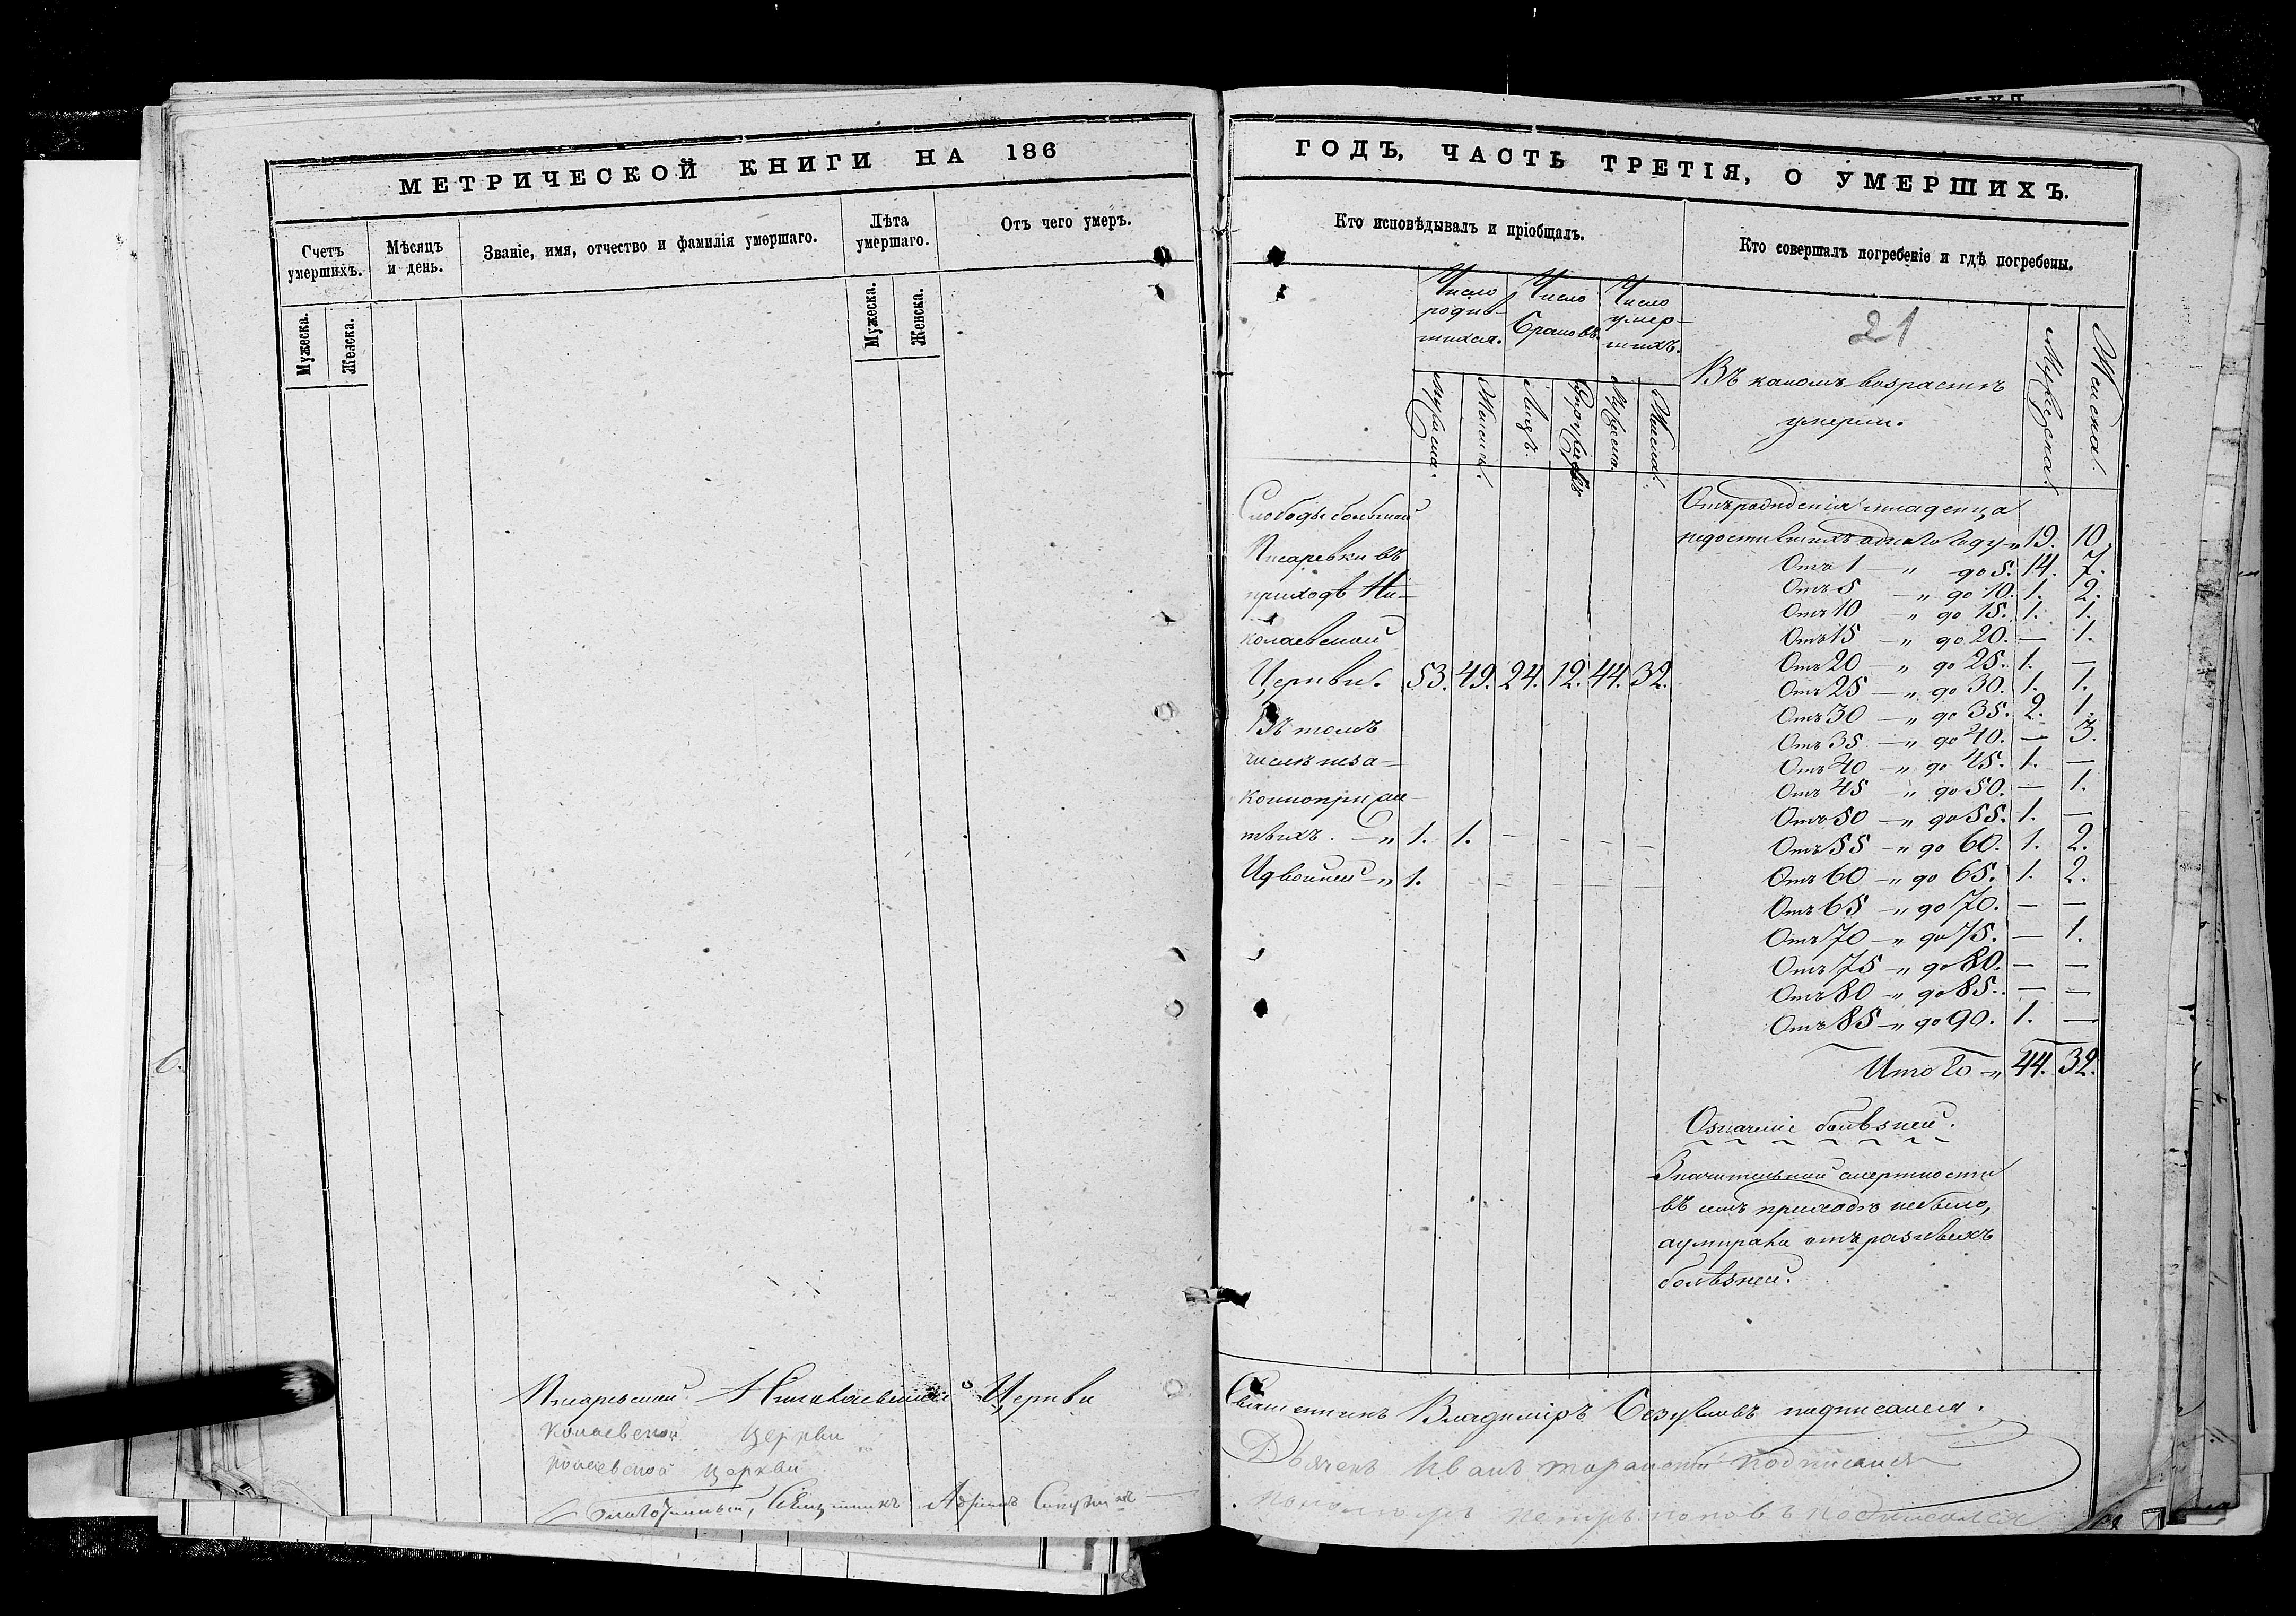 МЕТРИЧЕСКОЙ КНИГИ НА 186
Счетъ умершихъ.
Мѣсяцъ и день.
Званіе, имя, отчество и фамилія умершаго.
Лѣта умершаго.
Отъ чего умеръ.
Мужеска.
Женска.
Мужеска.
Женска.
Писаревской Николаевской Церкви
колаевской церкви
колаевской церкви
Благочинный, Священникъ
ГОДЪ, ЧАСТЬ ТРЕТІЯ, О УМЕРШИХЪ.
Кто исповѣдывалъ и пріобщалъ.
Кто совершалъ погребеніе и гдѣ погребены.
Число родив-
шихся.
Число
браковъ.
Число
умер-
шихъ.
21
Въ какомъ возрастѣ
умерли.
Мужеска.
Женска.
Мужеска.
Женска.
Лицъ.
Супружествъ
Мужеска.
Женска.
Слободы большой
Писаревки въ
приходѣ Ни-
колаевской
Церкви. 53. 49. 24. 12. 44. 32.
Въ томъ
числѣ неза-
коннопри
тыхъ. — „ 1. 1. — — — —
И двойней — „ 1. — — — — —
Отъ рожденія младенца
недостигшихъ одного году „ 19. 10.
Отъ 1 — „ до 5. 14. 7.
Отъ 5 — „ до 10. 1. 2.
Отъ 10 — „ до 15. 1. 1.
Отъ 15 — „ до 20. — 1.
Отъ 20 — „ до 25. 1. —
Отъ 25 — „ до 30. 1. 1.
Отъ 30 — „ до 35. 2. 1.
Отъ 35 — „ до 40. — 3.
Отъ 40 — „ до 45. 1. —
Отъ 45 — „ до 50. — 1.
Отъ 50 — „ до 55. 1. —
Отъ 55 — „ до 60. 1. 2.
Отъ 60 — „ до 65. 1. 2.
Отъ 65 — „ до 70. — —
Отъ 70 — „ до 75. — 1.
Отъ 75 — „ до 80. — —
Отъ 80 — „ до 85. — —
Отъ 85 — „ до 90. 1. —
Итого — „ 44. 32.
Означеніе болѣзней.
Значительной смертности
въ семъ приходѣ небыло,
а умирали отъ разныхъ
болѣзней.
Священникъ Владиміръ подписался.
Дьячекъ Иванъ подписался
пономарь петръ поповъ подписался